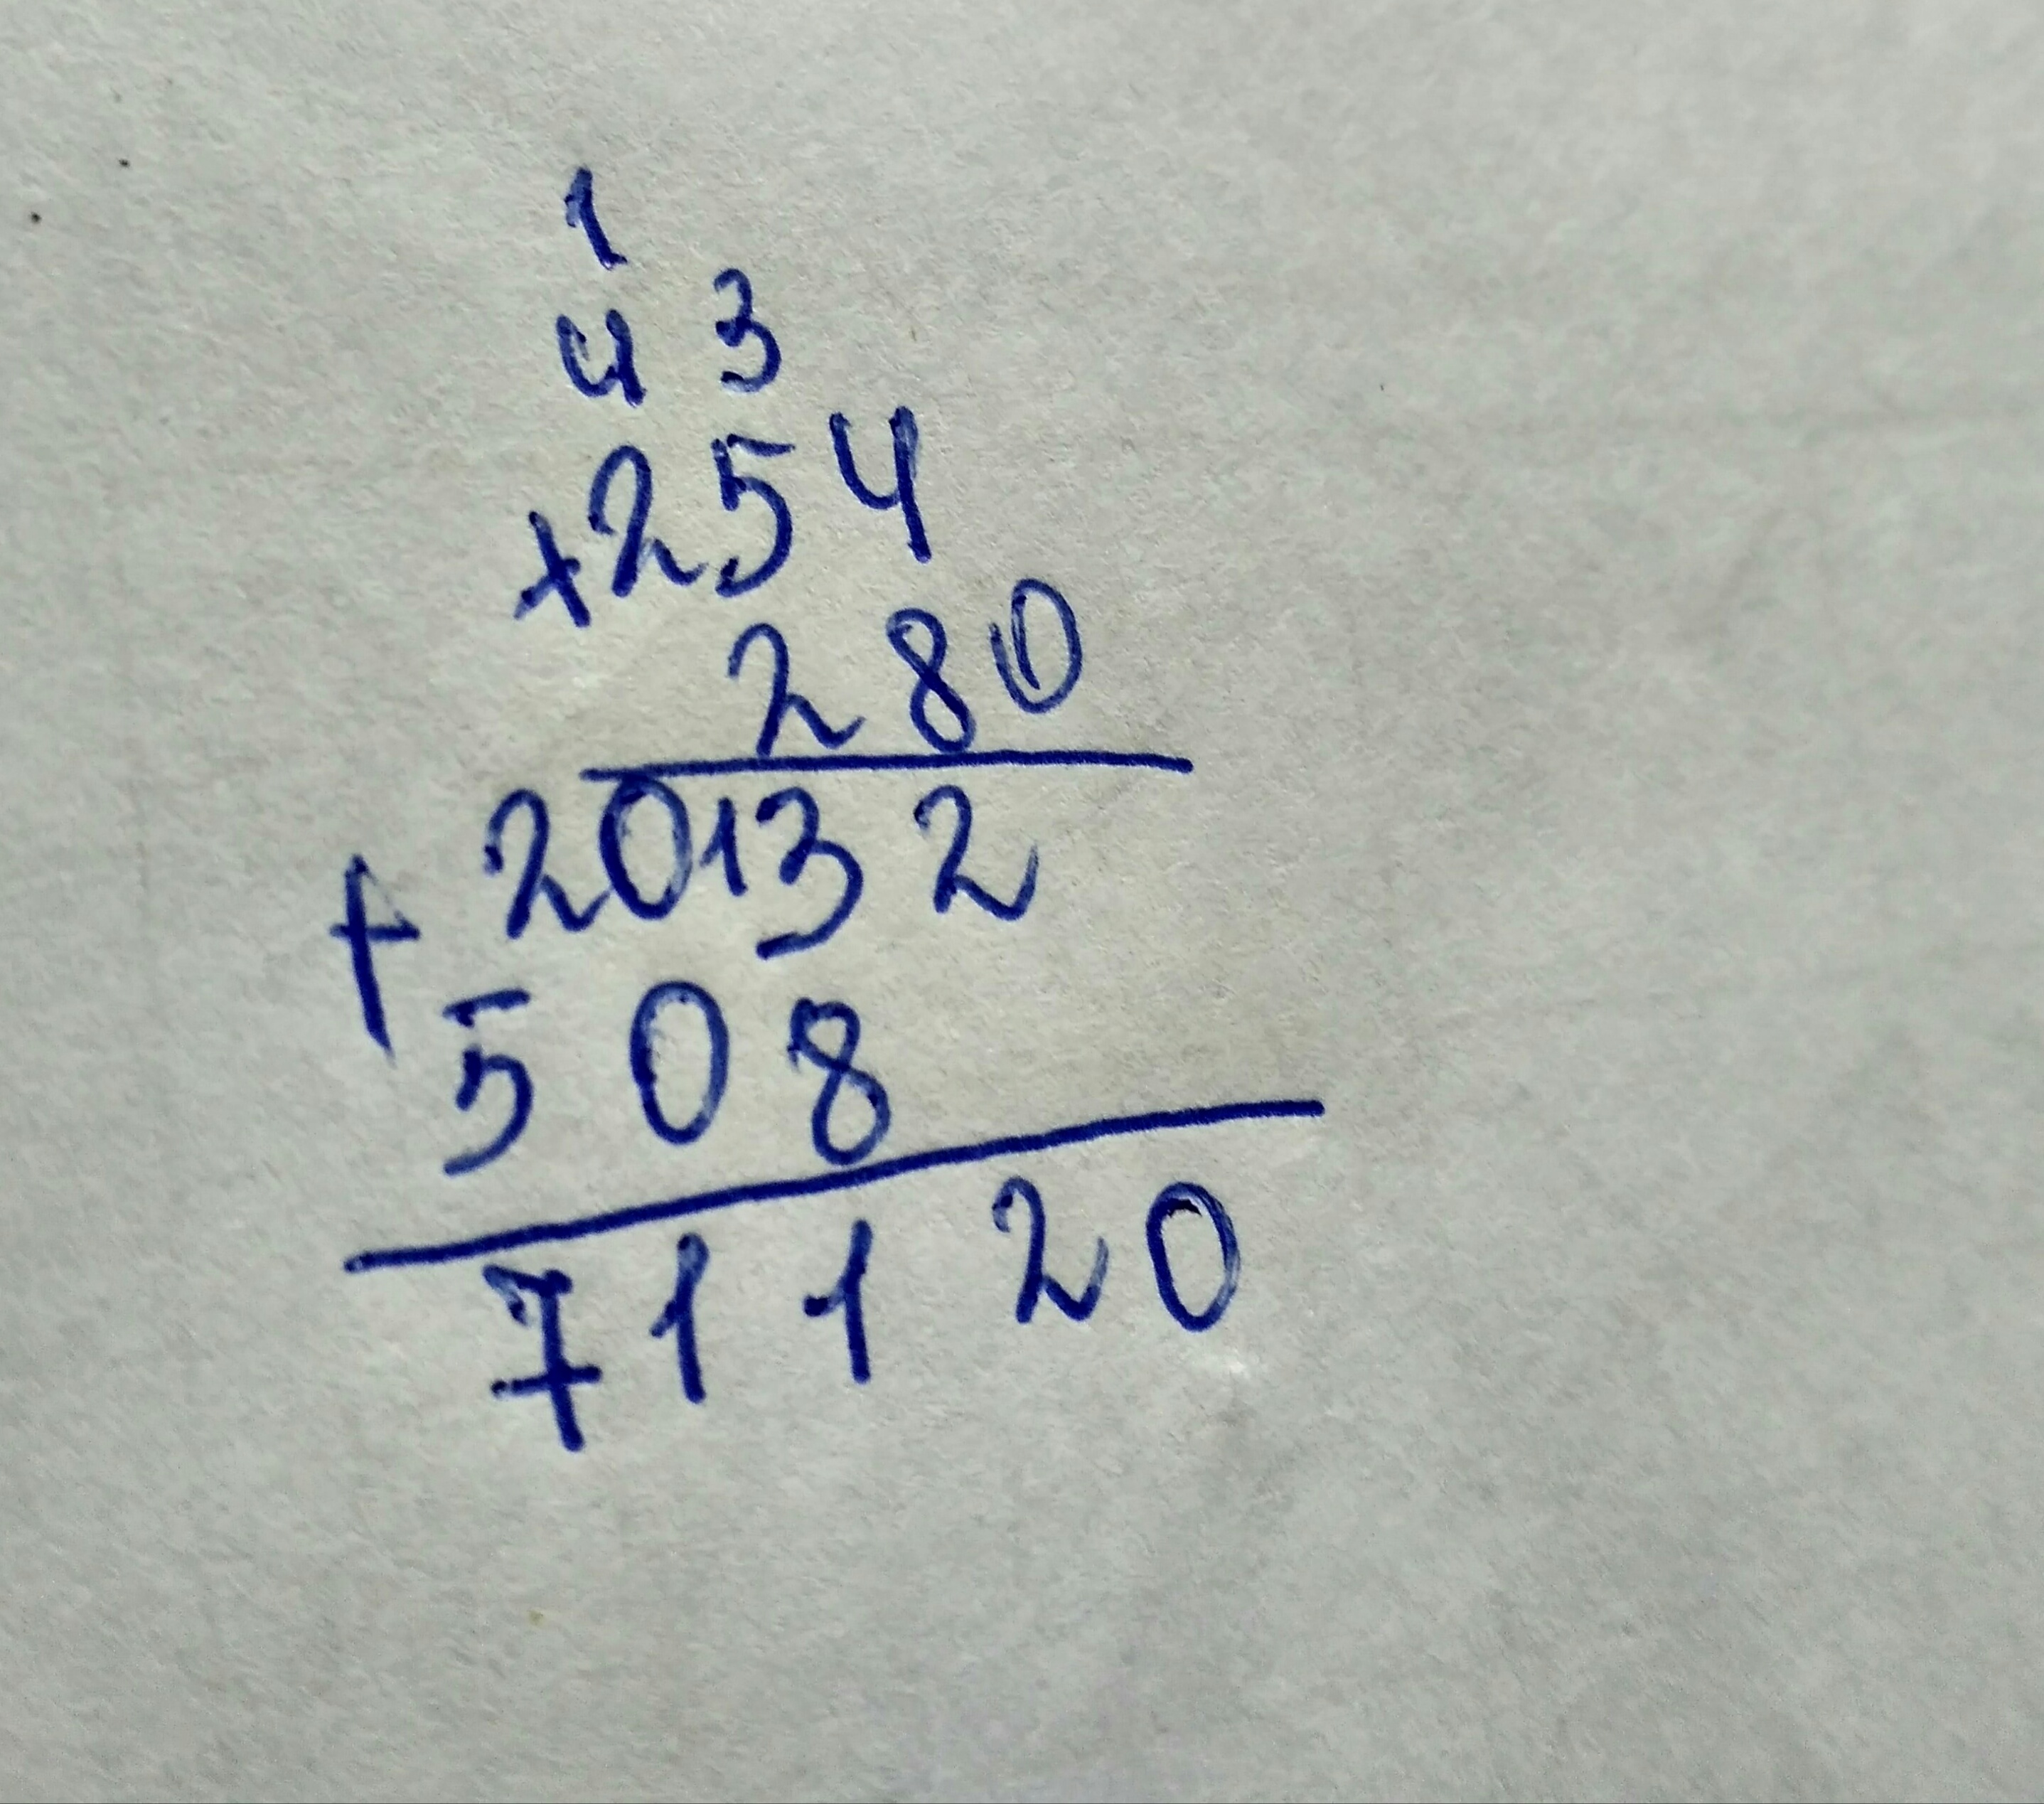 1
4 3
+254
280
+ 20132
508
71120